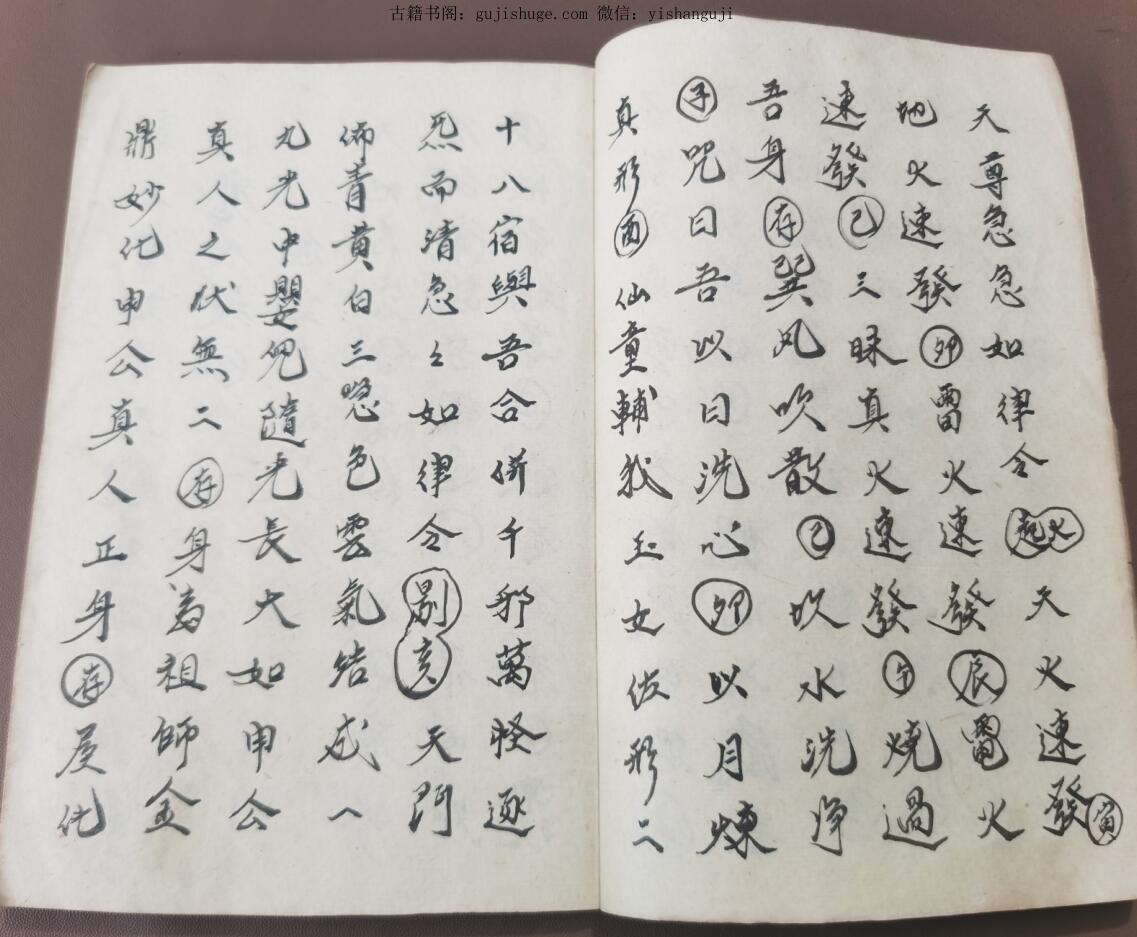 古籍书阁：gujishuge.com 微信：yishanguji
天尊急急如律令起火天火速發寅
地火速發卯雷火速發辰電火
速發已三昧真火速發午燒過
吾身存巽风吹散已坎水洗净
子咒曰吾以日洗心卯以月煉
真形酉仙童輔我玉女佐形二
十八宿與吾合併千邪萬怪逐
炁而清急〻如律令剔亥天門
佈青黄白三色雲氣結成一
丸光中嬰児隨光長大如申公
真人之状無二存身為祖師金
鼎妙化申公真人正身存屋化